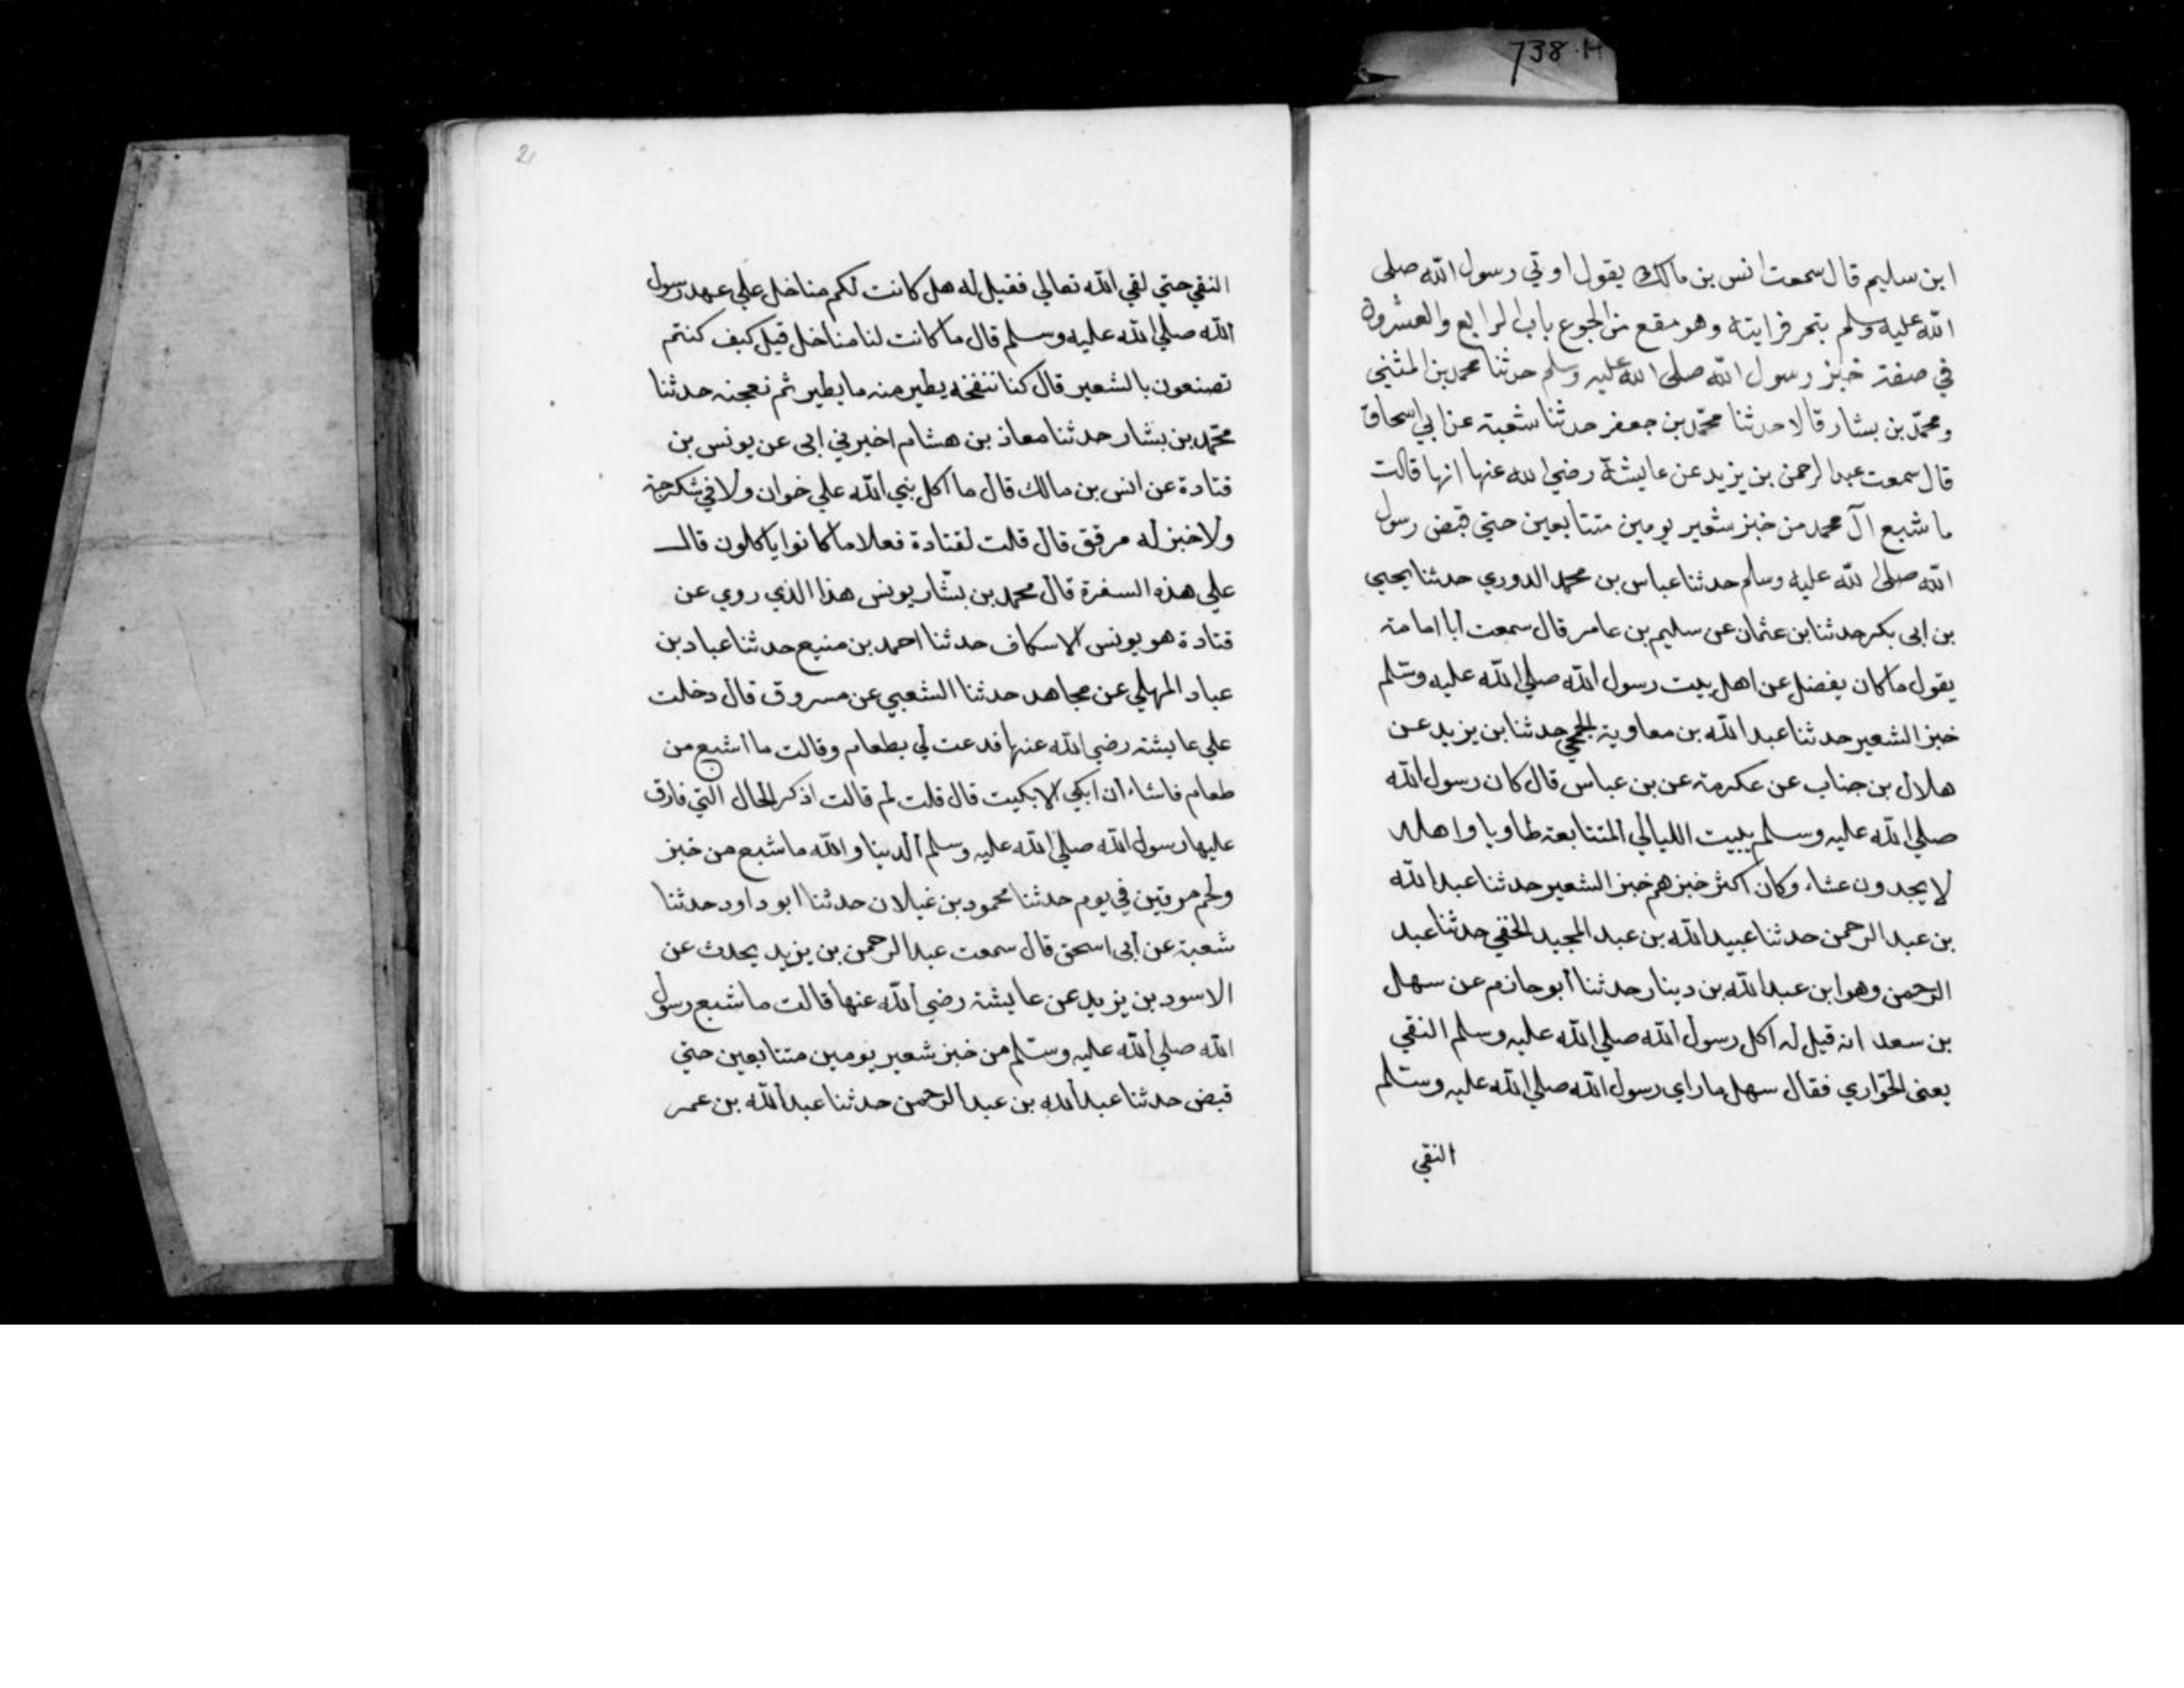 738.H
ابن سليم قال سمعت انس بن مالك يقول اوتي رسول الله صلى
الله عليه وسلم بتمر فرايته وهو مقع من الجوع باب الرابع والعشرون
في صفة خبز رسول الله صلى الله عليه وسلم حدثنا محمد بن المثني
ومحمد بن بشار قالا حدثنا محمد بن جعفر حدثنا شعبة عن ابي اسحاق
قال سمعت عبد الرحمن بن يزيد عن عايشة رضي الله عنها انها قالت
ما شبع آل محمد من خبز شعير يومين متتابعين حتي قبض رسول
الله صلى الله عليه وسلم حدثنا عباس بن محمد الدوري حدثنا يحيي
بن ابى بكر حدثنا بن عثمان عن سليم بن عامر قال سمعت ابا امامة
يقول ما كان يفضل عن اهل بيت رسول الله صلي الله عليه وسلم
خبز الشعير حدثنا عبد الله بن معاوية الجمحي حدثنا بن يزيد عن
هلال بن جناب عن عكرمة عن بن عباس قال كان رسول الله
صلي الله عليه وسلم يبيت الليالي المتتابعة طاويا واهله
لا يجدون عشاء وكان اكثر خبزهم خبز الشعير حدثنا عبد الله
بن عبد الرحمن حدثنا عبيد الله بن عبد المجيد الحنفي حدثنا عبد
الرحمن وهو ابن عبد الله بن دينار حدثنا ابو حازم عن سهل
بن سعد انه قيل له اكل رسول الله صلي الله عليه وسلم النقي
يعنى الحوّاري فقال سهل ما راي رسول الله صلي الله عليه وسلم
النقي
2
النقي حتي لقي الله تعالي فقيل له هل كانت لكم مناخل علي عهد رسول
الله صلي الله عليه وسلم قال ما كانت لنا مناخل قيل كيف كنتم
تصنعون بالشعير قال كنا ننفخه يطير منه ما يطير ثم نعجنه حدثنا
محمد بن بشار حدثنا معاذ بن هشام اخبرني ابى عن يونس بن
قتادة عن انس بن مالك قال ما اكل نبي الله علي خوان ولا في سكرجة
ولا خبز له مرقق قال قلت لقتادة فعلاما كانوا ياكلون قال
علي هذه السفرة قال محمد بن بشار يونس هذا الذي روي عن
قتادة هو يونس الاسكاف حدثنا احمد بن منيع حدثنا عباد بن
عباد المهلي عن مجاهد حدثنا الشعبي عن مسروق قال دخلت
علي عايشة رضي الله عنها فدعت لي بطعام وقالت ما اشبع من
طعام فاشاء ان ابكي الا بكيت قال قلت لم قالت اذكر الحال التي فارق
عليها رسول الله صلي الله عليه وسلم الدنيا والله ما شبع من خبز
ولحم مرتين في يوم حدثنا محمود بن غيلان حدثنا ابو داود حدثنا
شعبة عن ابى اسحق قال سمعت عبد الرحمن بن يزيد يحدث عن
الاسود بن يزيد عن عايشة رضي الله عنها قالت ما شبع رسول
الله صلي الله عليه وسلم من خبز شعير يومين متتابعين حتي
قبض حدثنا عبد الله بن عبد الرحمن حدثنا عبد الله بن عمر